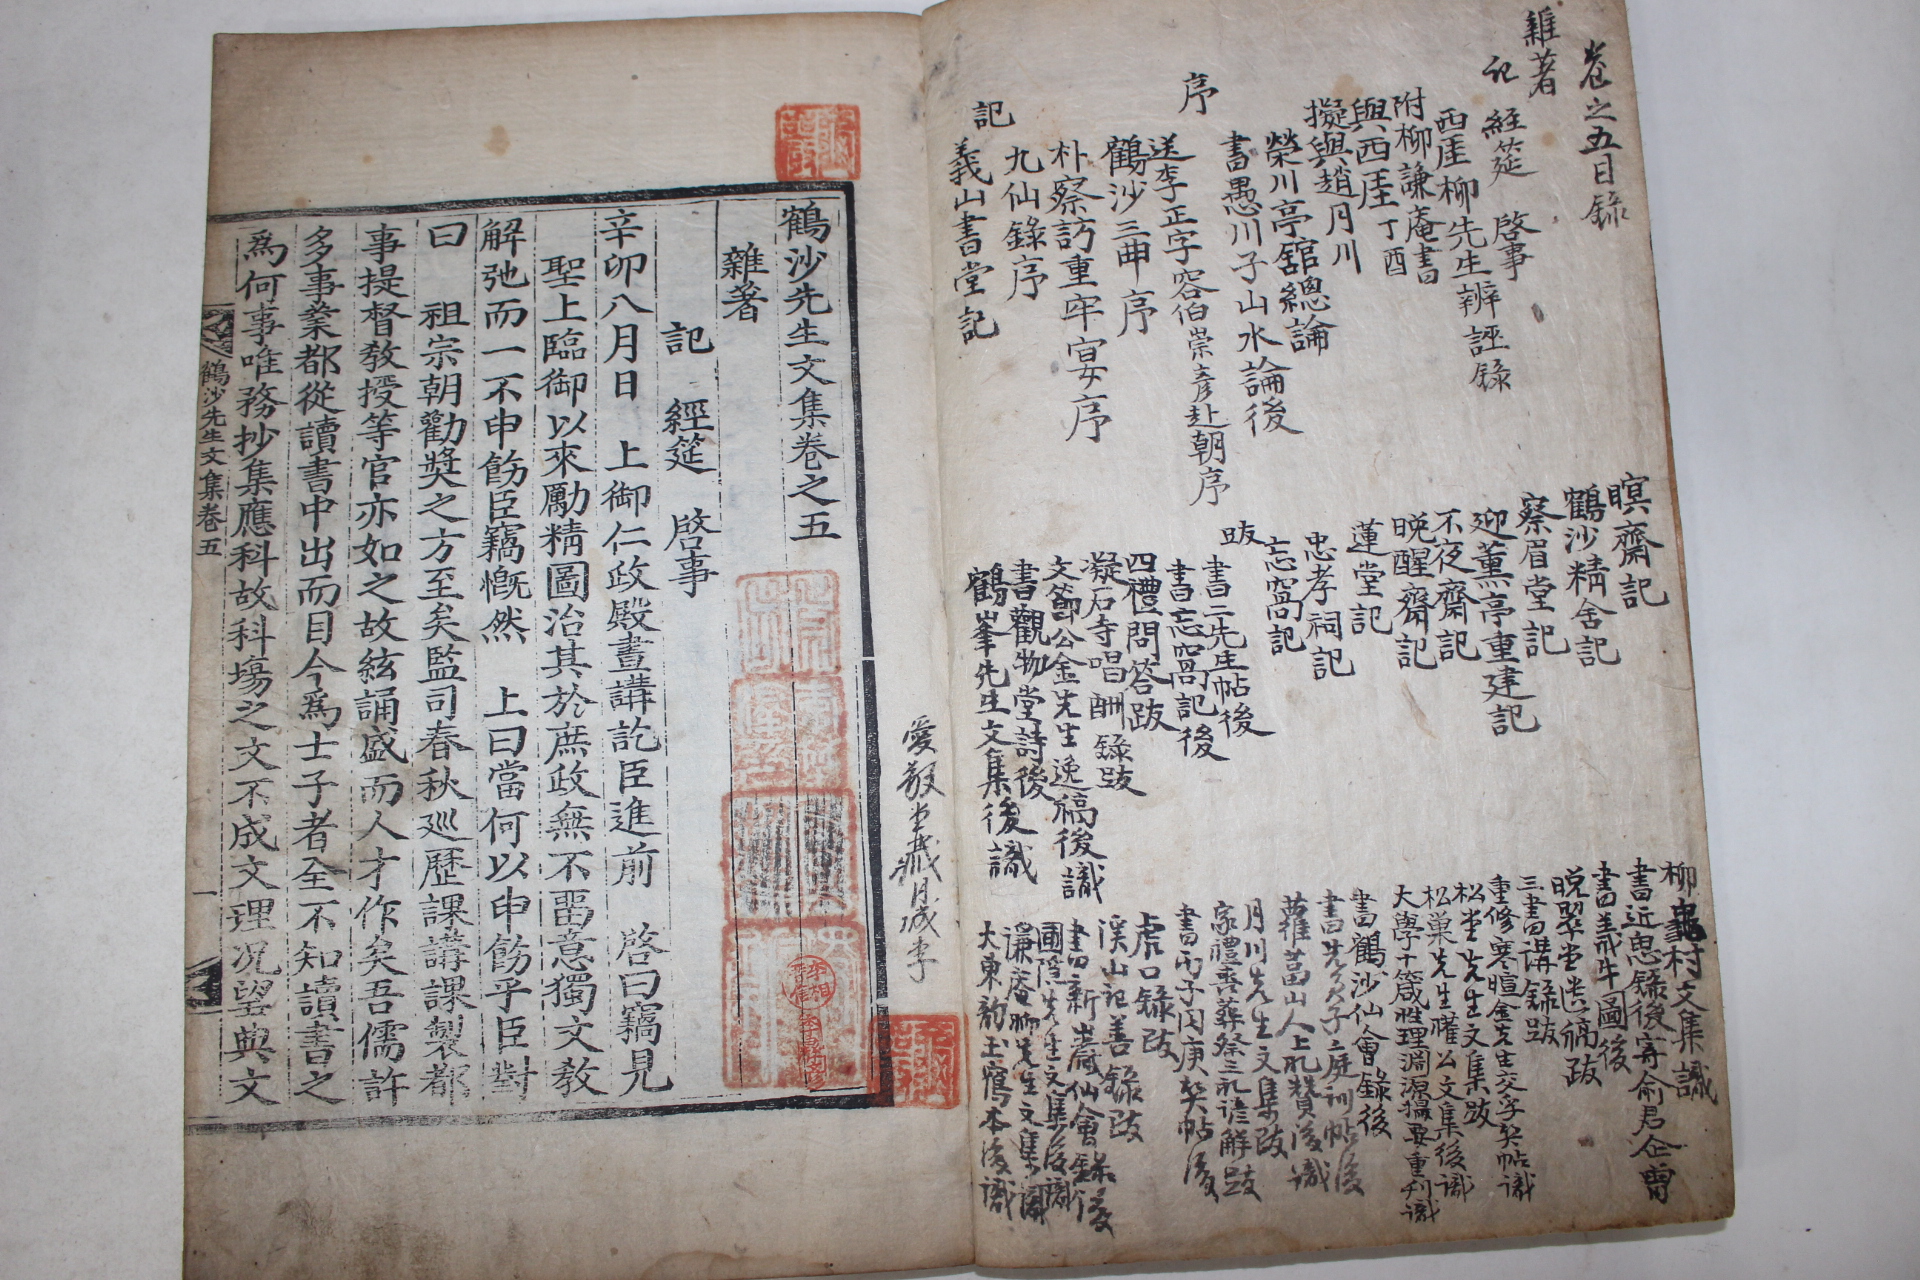 卷之五目錄
雜著
記 經筵 啓事
西厓柳先生辨誣錄
附柳謙庵書
與西厓丁酉
擬與趙月川
榮川亭館總論
書愚川子山水論後
序
送李正字容伯崇彦赴朝序
鶴沙三曲序
朴察訪重牢宴序
九仙錄序
記
義山書堂記
暝齋記
鶴沙精舍記
察眉堂記
迎薰亭重建記
不夜齋記
晩醒齋記
蓮堂記
忠孝祠記
忘窩記
跋
書二先生帖後
書忘窩記後
四禮問答跋
凝石寺唱酬錄跋
文節公金先生逸稿後識
書觀物堂詩後
鶴峯先生文集後識
柳龜村文集識
書近思錄後寄俞君企曾
書喜斗圖後
晩翠堂遺稿跋
三書講錄跋
重修寒暄金先生交孚契帖識
松堂先生文集跋
松巢先生權公文集後識
大學十箴性理淵源撮要重刊識
書鶴沙仙會錄後
書先夫子庭訓帖後
蘿菖山人上礼贊後識
家禮喪葬祭礼諺解跋
月川先生文集跋
書丙子同庚契帖後
虎口錄跋
溪山記善錄跋
書新巖仙會錄後
圃隱先生文集後識
謙庵柳先生文集識
大東韵玉寫本後識
愛敬堂藏月城李
鶴沙先生文集卷之五
雜著
記 經筵 啓事
辛卯八月日 上御仁政殿晝講訖臣進前 啓曰竊見
聖上臨御以來勵精圖治其於庶政無不畱意獨文教
解弛而一不申飭臣竊慨然 上曰當何以申飭乎臣對
曰 祖宗朝勸奬之方至矣監司春秋廵歷課講課製都
事提督教授等官亦如之故絃誦盛而人才作矣吾儒許
多事業都從讀書中出而目今爲士子者全不知讀書之
爲何事唯務抄集應科故科場之文不成文理况望典文
鶴沙先生文集卷五 一